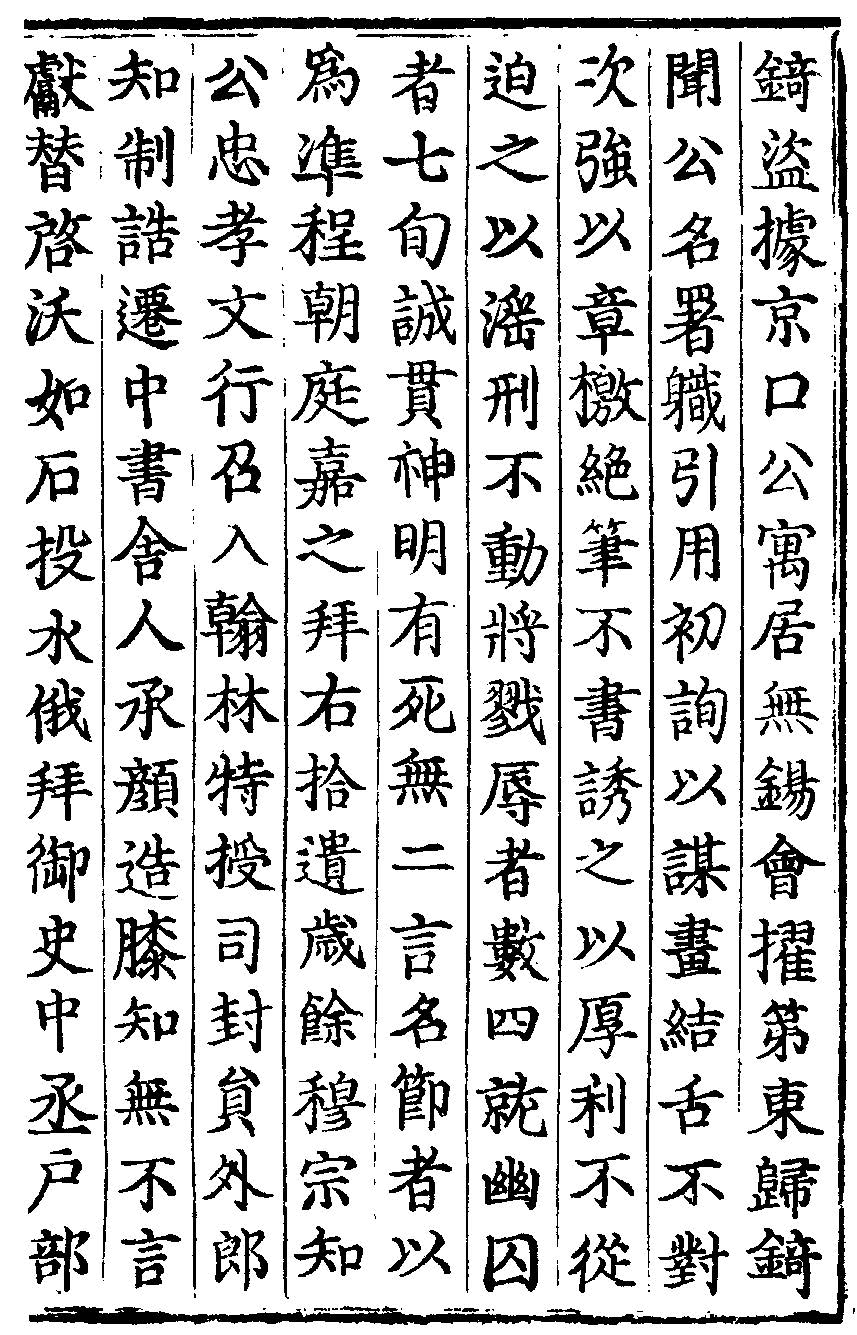 錡盜據京口公寓居無錫會擢第東歸錡
聞公名署職引用初詢以謀畫結舌不對
次強以章檄絕筆不書誘之以厚利不從
迫之以滛刑不動將戮辱者數四就幽囚
者七旬誠貫神明有死無二言名節者以
為準程朝庭嘉之拜右拾遺歲餘穆宗知
公忠孝文行召入翰林特授司封員外郎
知制誥遷中書舍人承顏造膝知無不言
獻替啓沃如石投水俄拜御史中丞戶部